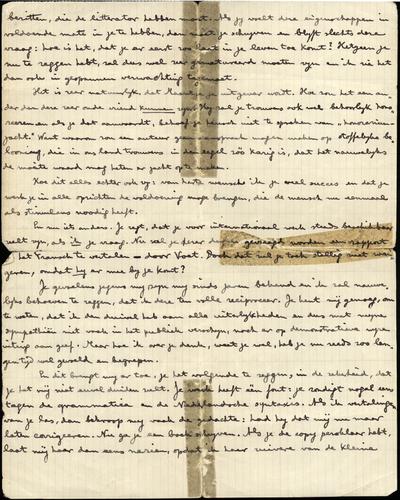 bezitten, die de litterator hebben moet. Als jij voelt deze eigenschappen in
voldoende mate in je te hebben, dan moet je schrijven en blijft slechts deze
vraag: hoe is het, dat je er eerst zoo laat in je leven toe komt? Hetgeen je
me te zeggen hebt, zal dus wel zeer gematureerd moeten zijn en ik zie het
dan ook in gespannen verwachting tegemoet.
Het is zeer natuurlijk, dat uitgever wordt. Hoe zou het een an-
der dan deze zeer oude vriend kunnen zijn? Hij zal je trouwens ook wel behoorlijk hono-
reeren en als je dat aanvaardt, behoef je heusch niet te spreken van "honorarium-
jacht". Want waarom zou een auteur geen aanspraak mogen maken op stoffelijke be-
looning, die in ons land trouwens in den regel zóó karig is, dat het nauwelijks
de moeite waard mag heten er jacht op te maken.
Hoe dit alles echter ook zij: van harte wensch ik je veel succes en dat je
werk je in alle opzichten de voldoening moge brengen, die de mensch nu eenmaal
als stimulans noodig heeft.
En nu iets anders. Je zegt, dat je voor internationaal werk steeds beschikbaar
zult zijn, als ik je vraag. Nu zal je derer gevraagd worden een rapport
in het Fransch te vertalen door Voet. Doch dat zul je toch stellig niet wei-
geren, omdat hij er mee bij je komt?
Je gevoelens jegens mij zijn mij sinds jaren bekend en ik zal nauwe-
lijks behoeven te zeggen, dat ik deze ten volle reciproceer. Je kent mij genoeg, om
te weten, dat ik den duivel heb aan alle uiterlijkheden en dus met mijne
sympathieën niet vaak in het publiek verschijn, noch er op demonstratieve wijze
uiting aan geef. Maar hoe ik over je denk, weet je wel, heb je nu reeds zoo lan-
gen tijd wel gevoeld en begrepen.
En dit brengt mij er toe, je het volgende te zeggen, in de zekerheid, dat
je het mij niet euvel duiden zult. Je werk heeft één fout: je zondigt nogal eens
tegen de grammatica en de Nederlandsche syntaxis. Als ik vertalingen
van je las, dan bekroop mij vaak de gedachte: had hij dat mij nu maar
laten corrigeeren. Nu ga je een boek schrijven. Als je de copy persklaar hebt,
laat mij haar dan eens nazien, opdat ik haar zuivere van de kleine